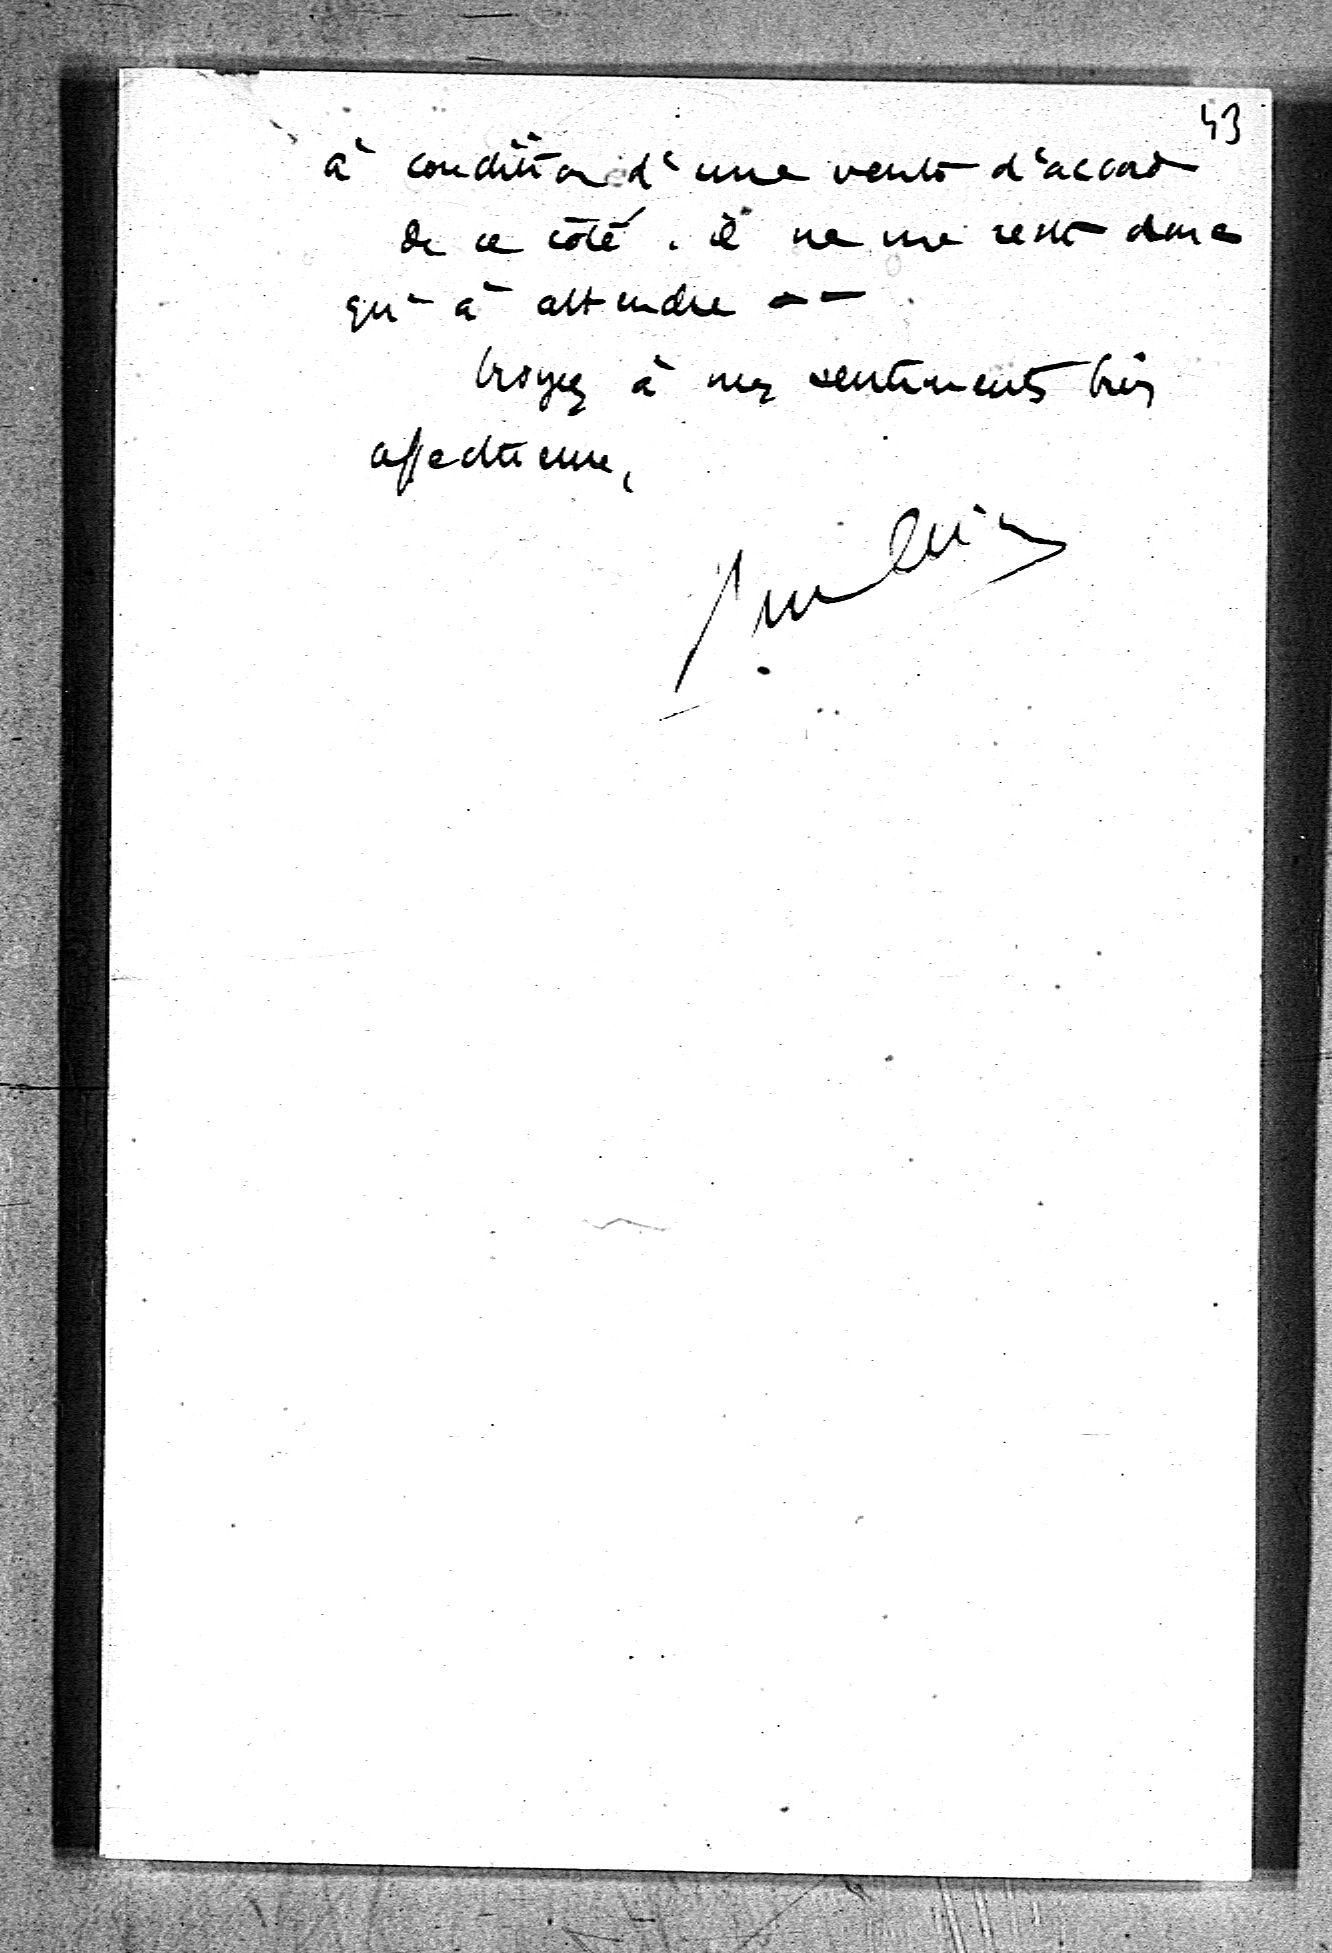 43
à condition d'une vente d'accord
de ce côté. il ne me reste donc
qu'à attendre --
Croyez à mes sentiments très
affectueux,